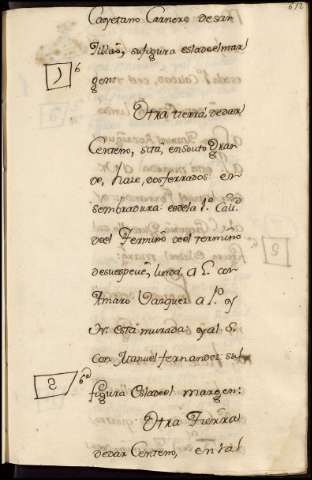 612
Cayetano Carnero de San
Tillao, su figura es la del mar
gen:
Otra tierra, de dar
Centeno, sita, en souto gran
de, haze, dos ferrados en
sembradura es de la 1ª Cali
del Termino del termino
desuespeue, linda, a L. con
Amaro Vazquez a P. y
N. esta murada, y al S.
con Manuel fernandez su
figura es la del margen:
Otra Tierra
de dar Centeno, en tal